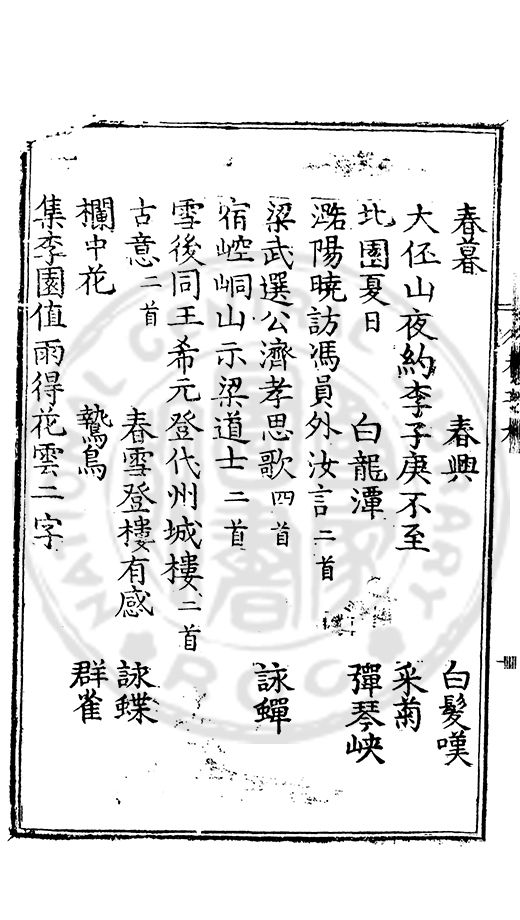 春暮　春興　白髮嘆
大伾山夜約李子庚不至　采菊
北園夏日　白龍潭　彈琴峽
滏陽曉訪馮員外汝言二首
梁武選公濟孝思歌四首　詠蟬
宿崆峒山示梁道士二首
雪後同王希元登代州城樓二首
古意二首　春雪登樓有感　詠蝶
欄中花　鷙鳥　群雀
集李園值雨得花雲二字
NATIONAL CENTRAL LIBRARY
R.O.C